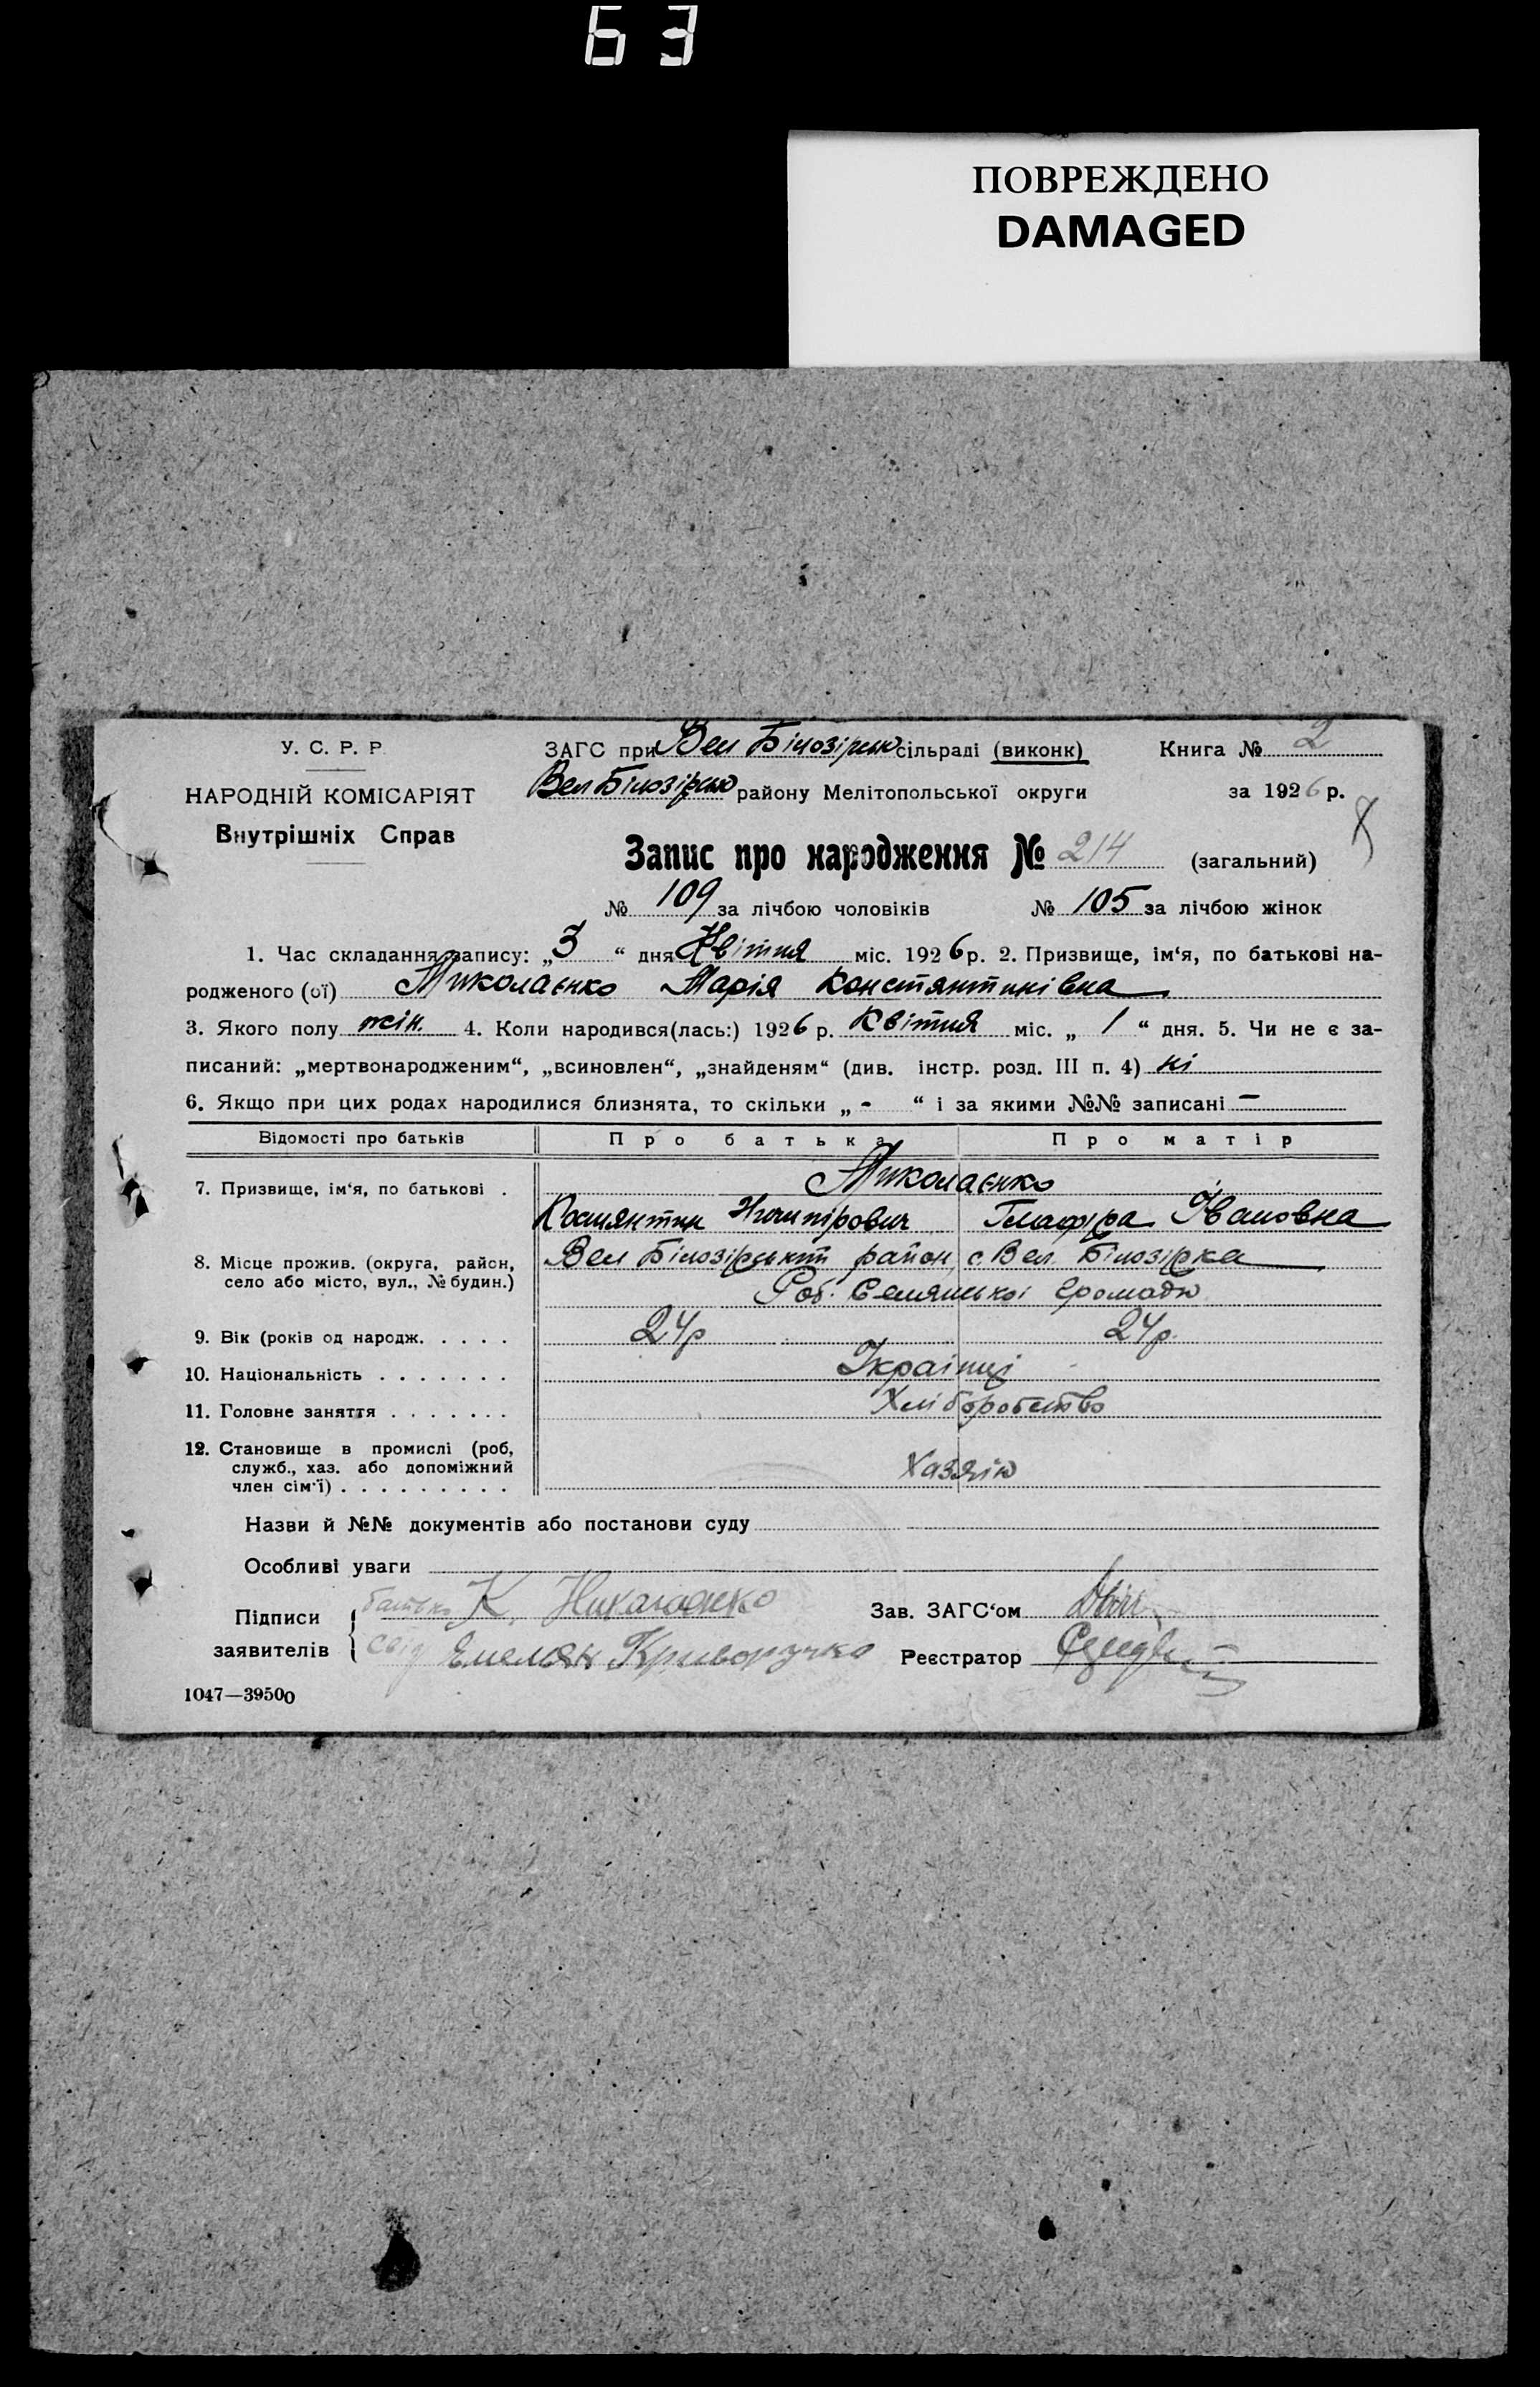 63
ПОВРЕЖДЕНО
DAMAGED
У. С. Р. Р.
НАРОДНІЙ КОМІСАРІЯТ
Внутрішніх Справ
ЗАГС при Вел Білозірськ сільраді (виконк)
Книга № 2
Вел Білозірськ району Мелітопольської округи
за 1926 р.
Запис про народження № 214 (загальний)
№ 109 за лічбою чоловіків № 105 за лічбою жінок
1. Час складання запису: „3“ дня Квітня міс. 1926 р. 2. Призвище, ім‘я, по батькові на-
родженого (ої) Миколаєнко Марія Констянтинівна
3. Якого полу жін. 4. Коли народився(лась:) 1926 р. Квітня міс. „ 1 “ дня. 5. Чи не є за-
писаний: „мертвонародженим“, „всиновлен“, „знайденям“ (див. інстр. розд. III п. 4) ні
6. Якщо при цих родах народилися близнята, то скільки „ - “ і за якими №№ записані —
Відомості про батьків Про батька Про матір
7. Призвище, ім‘я, по батькові . Миколаєнко
Костянтин Ничипірович Глафіра Івановна
8. Місце прожив. (округа, район, Вел Білозірський район, с. Вел. Білозірка
село або місто, вул., № будин.)
Роб. Селянської Громади
9. Вік (років од народж. . . . . 24р 24р.
10. Національність . . . . . . . Українці
11. Головне заняття . . . . . . . Хліборобство
12. Становище в промислі (роб,
служб., хаз. або допоміжний Хазяін
член сім‘ї) . . . . . . . . .
Назви й №№ документів або постанови суду
Особливі уваги
Підписи батько К. Николаенко Зав. ЗАГС‘ом
заявителів свід Емельян Криворучко Реєстратор
1047—39500